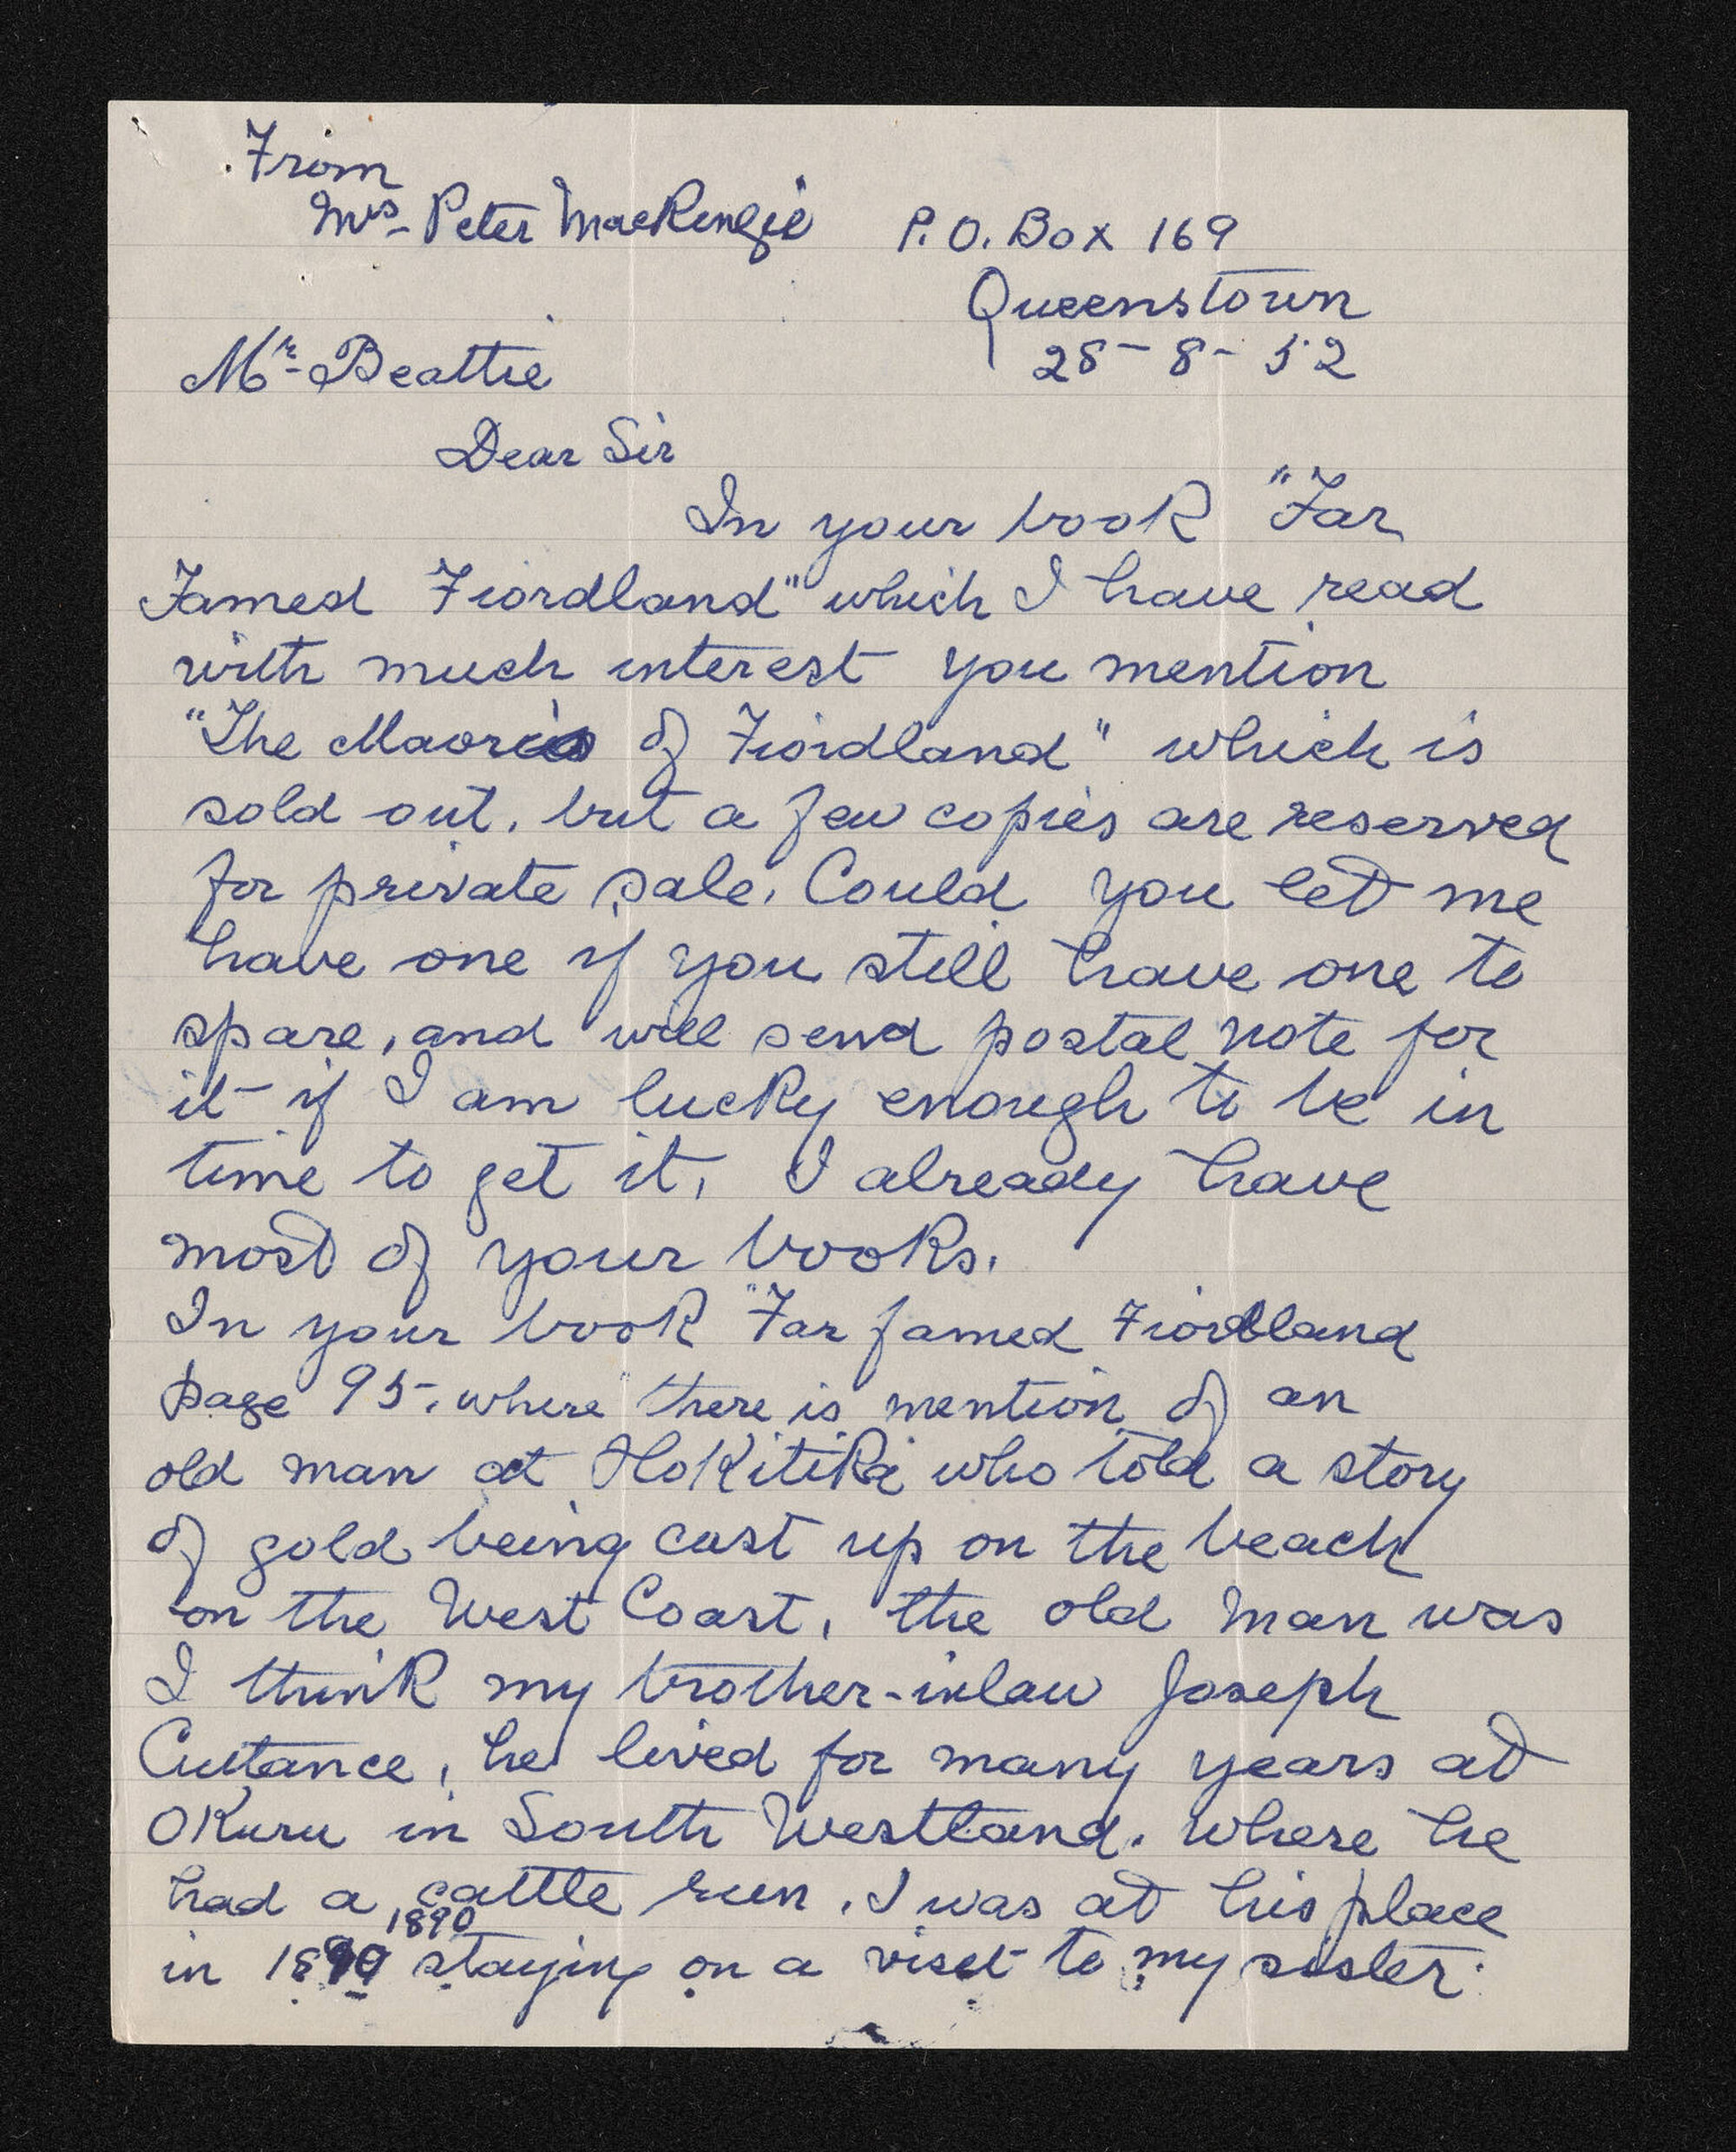 From
Mrs- Peter MacKenzie P.O. Box 169
Queenstown
28-8-52
Mr- Beattie
Dear Sir
In your book "Far
Famed Fiordland" which I have read
with much interest you mention
"The Maories of Fiordland" which is
sold out, but a few copies are reserved
for private sale. Could you let me
have one if you still have one to
spare, and will send postal note for
it- if I am lucky enough to be in
time to get it, I already have
most of your books.
In your book "Far famed Fiordland
page 95, where there is mention of an
old man at Hokitika who told a story
of gold being cast up on the beach
on the West Coast, the old man was
I think my brother-inlaw Joseph
Cuttance, he lived for many years at
Okuru in South Westland. where he
had a cattle run. I was at his place
1890
in 1890 staying on a visit to my sister.